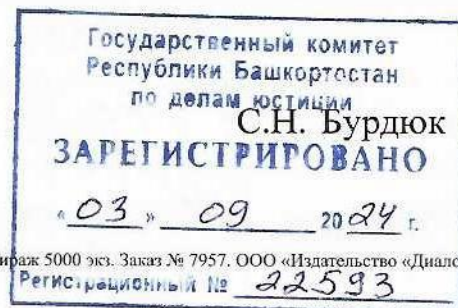 Государственный комитет
Республики Башкортостан
по делам юстиции
С.Н. Бурдюк
ЗАРЕГИСТРИРОВАНО
«03» 09 2024 г.
ираж 5000 экз. Заказ № 7957. ООО «Издательство «Диало
Регистрационный № 22593